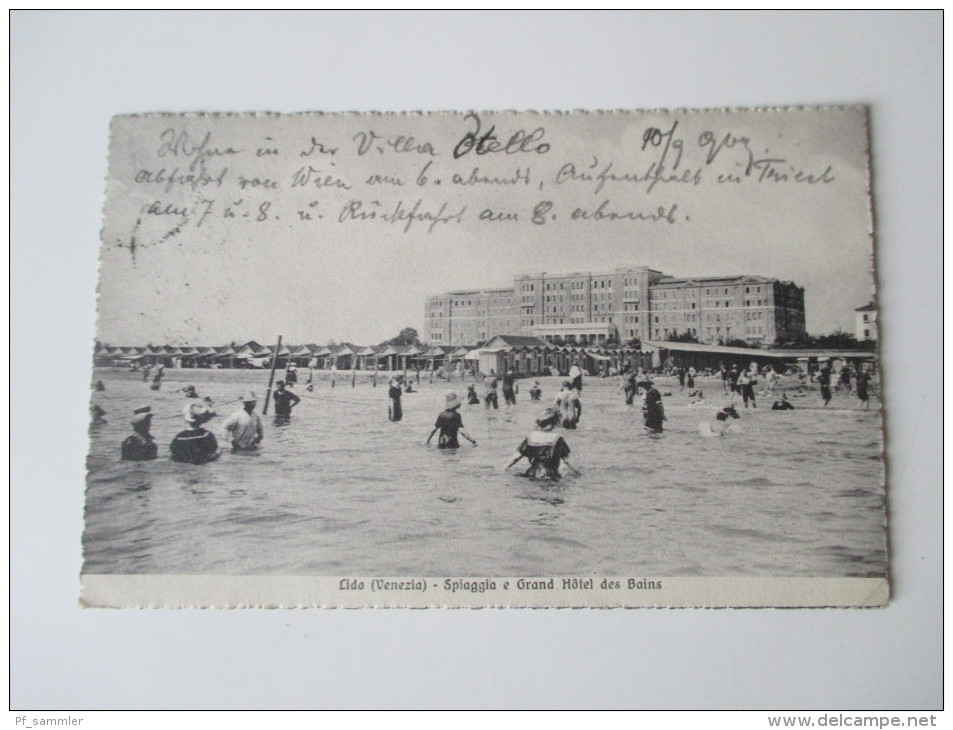 Wohne in der Villa Otello 10/9 909
Abfahrt von Wien am 6. abends, Aufenthalt in Triest
am 7 u. 8. u. Rückfahrt am 8. abends.
Lido (Venezia) - Spiaggia e Grand Hôtel des Bains
Pf_sammler
www.delcampe.net